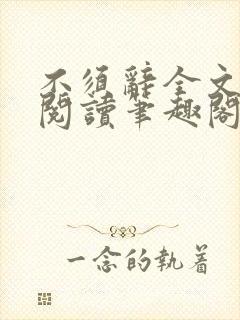 不須辭全文
閱讀筆趣閣
一念的執着